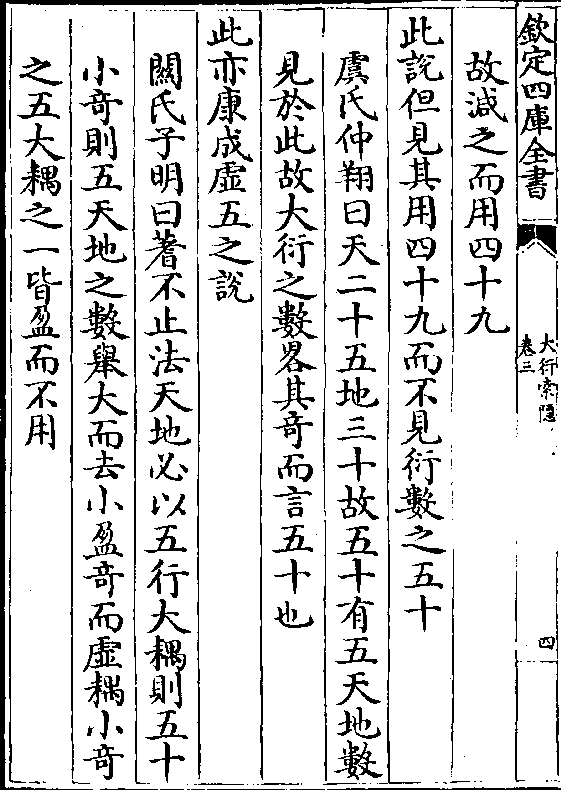 欽定四庫全書
大衍索隱
卷三
四
故減之而用四十九
此説但見其用四十九而不見衍數之五十
虞氏仲翔曰天二十五地三十故五十有五天地數
見於此故大衍之數畧其竒而言五十也
此亦康成虛五之說
關氏子明曰蓍不止法天地必以五行大耦則五十
小竒則五天地之數舉大而去小盈竒而虛耦小竒
之五大耦之一皆盈而不用